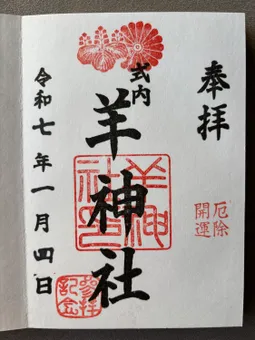 奉拝
厄除
開運
式内
羊神社
羊神
社印
令和七年一月四日
参拝
記念